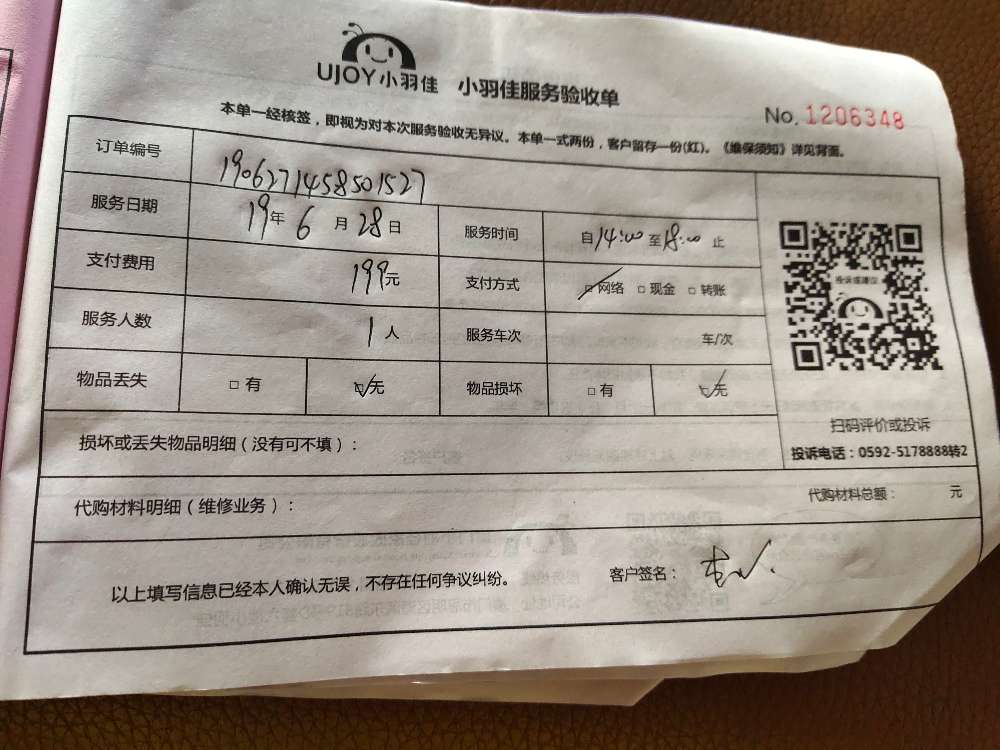 UJOY小羽佳 小羽佳服务验收单
No. 1206348
本单一经核签，即视为对本次服务验收无异议。本单一式两份，客户留存一份(红)。《维保须知》详见背面。
订单编号 1906271458501527
服务日期 19年 6 月 28 日 服务时间 自14:00 至18:00 止
支付费用 199元 支付方式 □网络 □现金 □转账
服务人数 1 人 服务车次 车/次
物品丢失 □有 □无 物品损坏 □有 □无
投诉或建议
扫码评价或投诉
投诉电话：0592-5178888转2
损坏或丢失物品明细（没有可不填）：
代购材料明细（维修业务）： 代购材料总额： 元
以上填写信息已经本人确认无误，不存在任何争议纠纷。 客户签名：